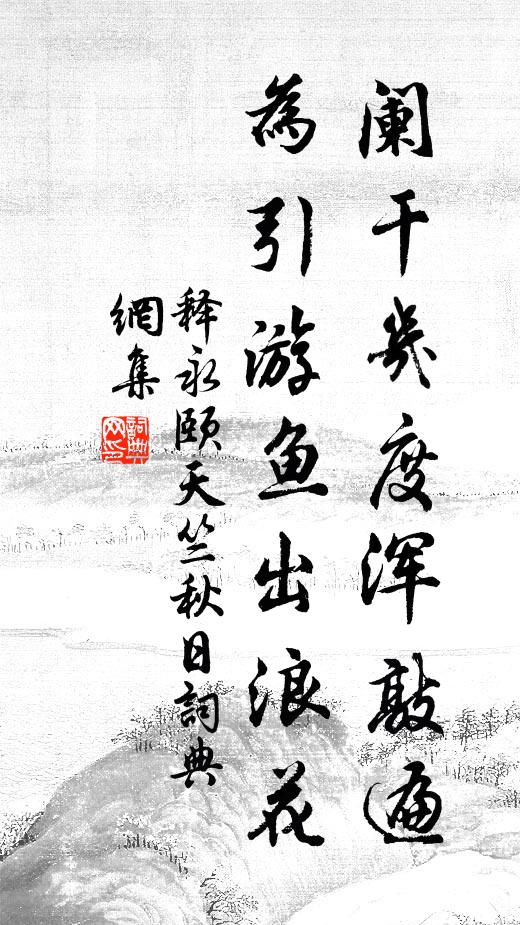 阑干几度浑敲遍
为引游鱼出浪花
释永颐天竺秋日词典
網集
詞典
网印